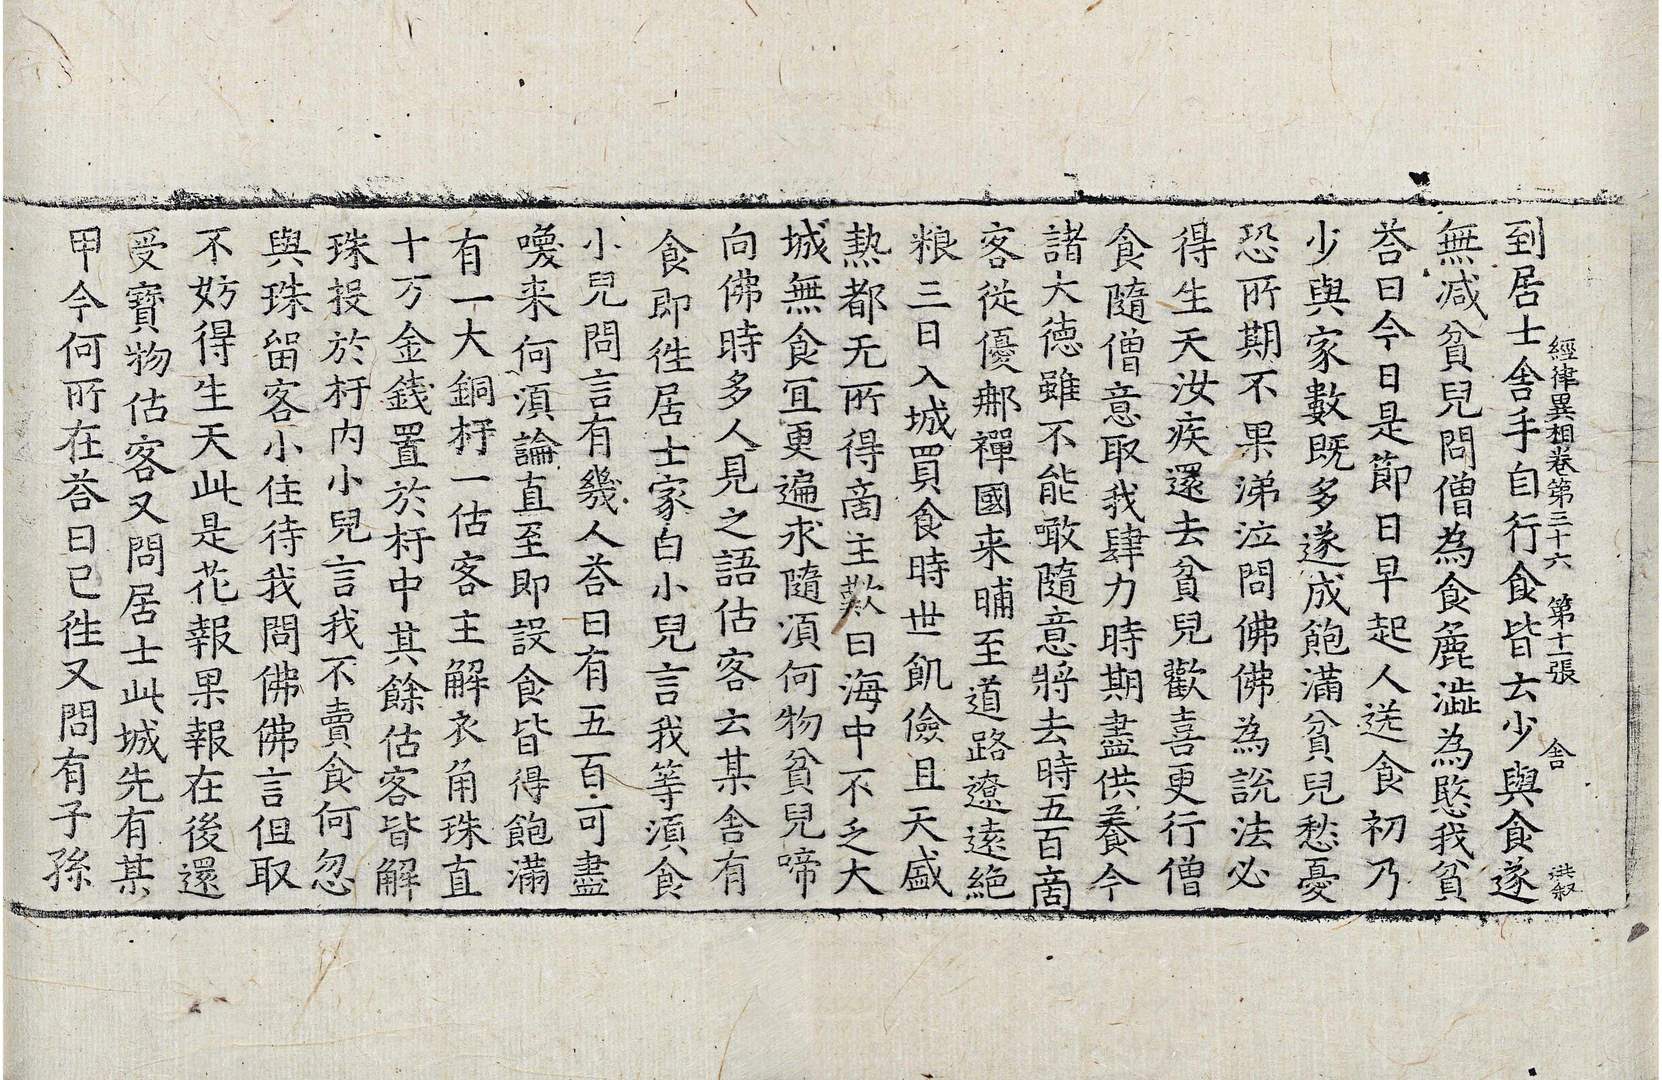 經律異相卷第三十六 第十一張 舍 洪叙
到居士舍手自行食皆云少與食遂
無减貧兒問僧為食麁澁為愍我貧
荅曰今日是節日早起人送食初乃
少與家數旣多遂成飽滿貧兒愁憂
恐所期不果涕泣問佛佛為說法必
得生天汝疾還去貧兒歡喜更行僧
食隨僧意取我肆力時期盡供養今
諸大德雖不能噉隨意將去時五百啇
客從優䣜禪國来晡至道路遼遠絶
粮三日入城買食時世飢儉且天盛
熱都无所得啇主歎曰海中不乏大
城無食冝更遍求隨湏何物貧兒啼
向佛時多人見之語估客云某舍有
食即徃居士家白小兒言我等湏食
小兒問言有幾人荅曰有五百可盡
喚来何湏論直至即設食皆得飽滿
有一大銅杅一估客主解衣角珠直
十万金錢置於杅中其餘估客皆解
珠投於杅内小兒言我不賣食何忽
與珠留客小住待我問佛佛言但取
不妨得生天此是花報果報在後還
受寶物估客又問居士此城先有某
甲今何所在荅曰已徃又問有子孫